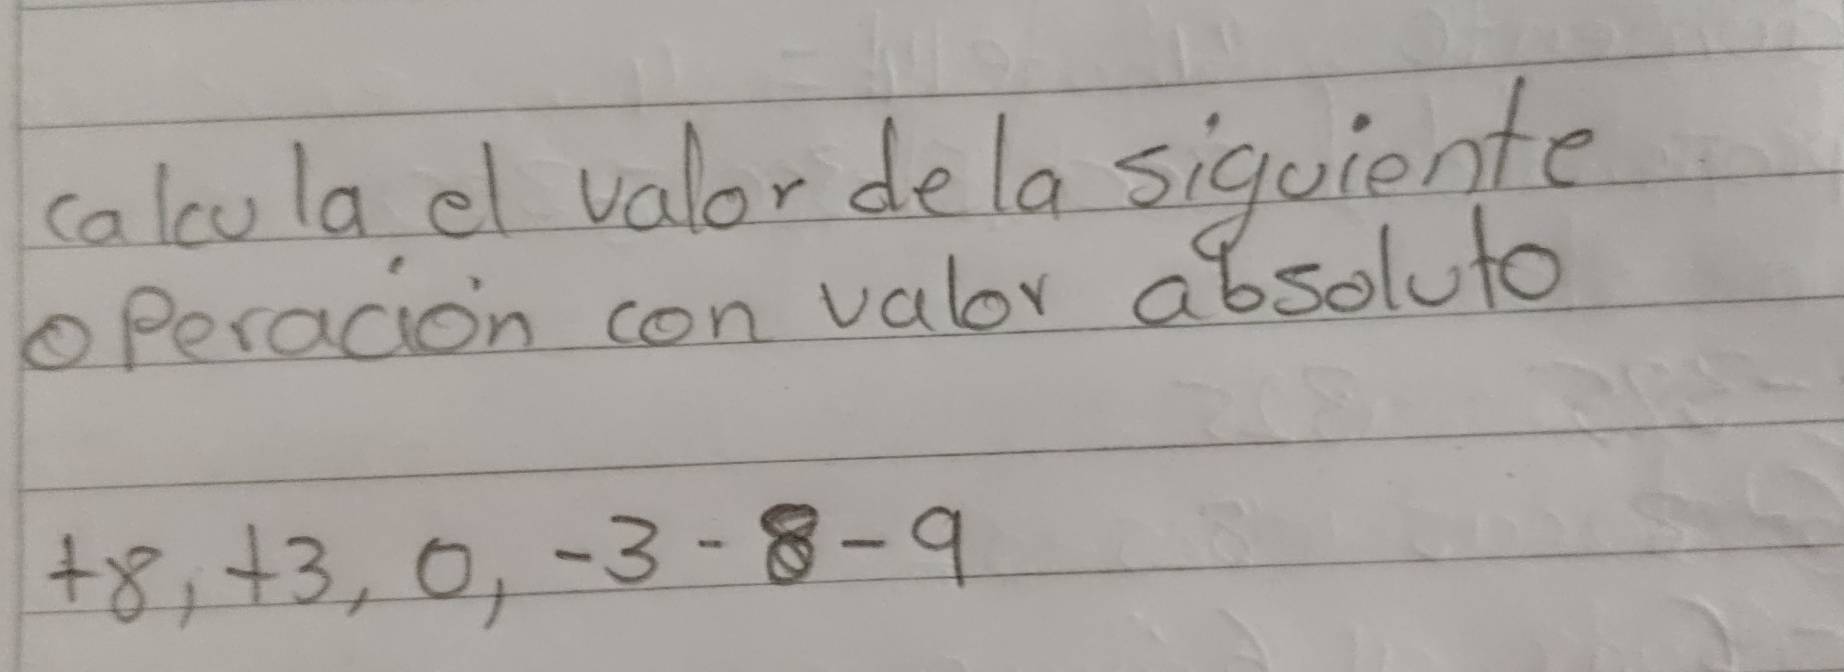 calcula el valor de la siguiente
operación con valor absoluto
+8, +3, 0, -3 - 8 - 9